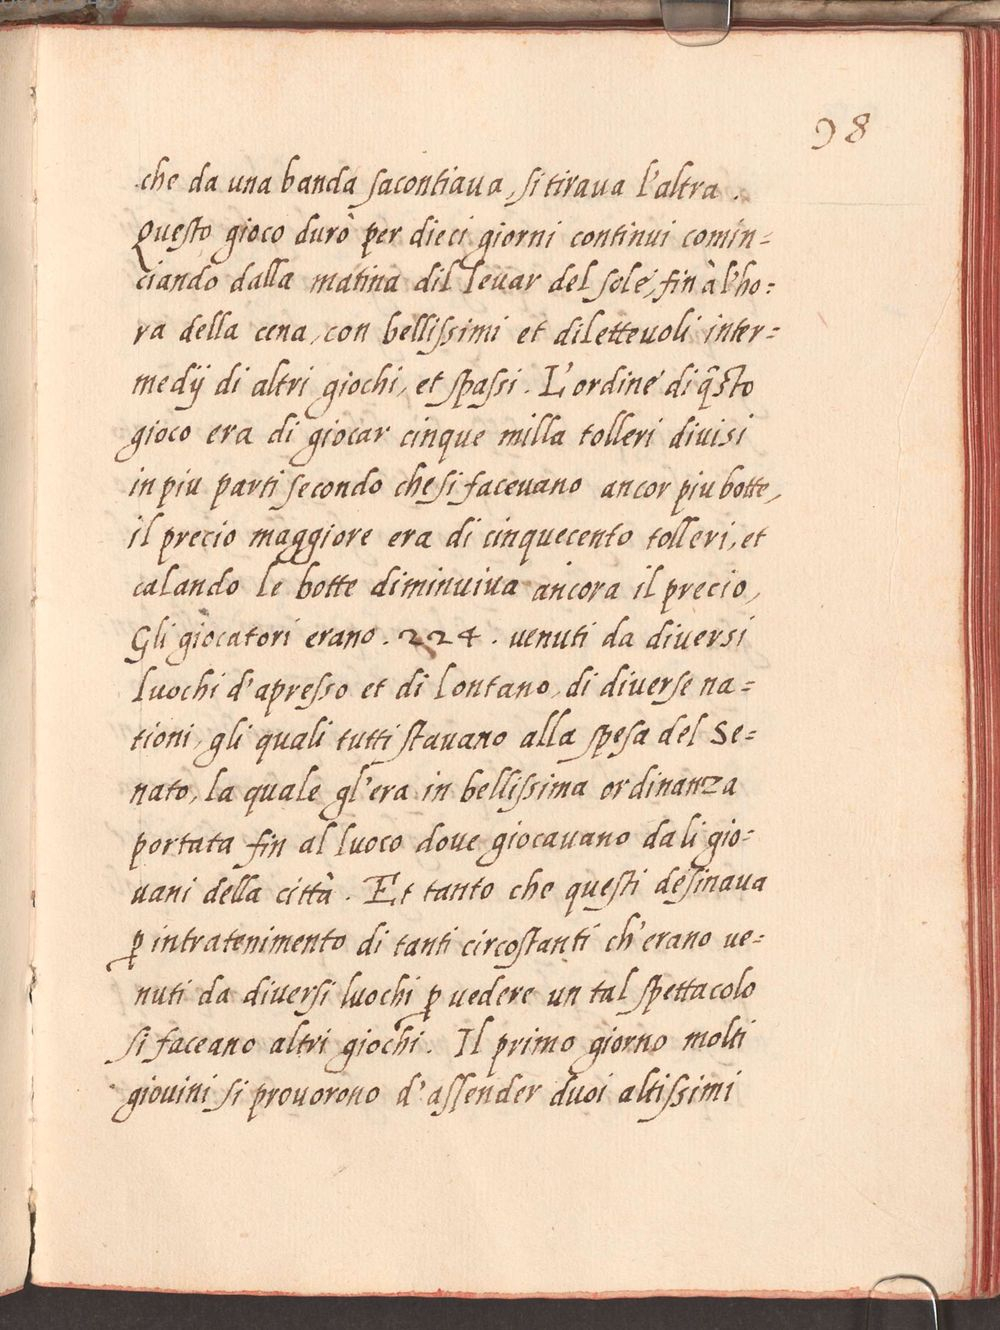 98
che da una banda sacontiaua, si tiraua l'altra.
Questo gioco durò per dieci giorni continui comin=
ciando dalla matina dil leuar del sole, fin à l'ho=
ra della cena, con bellissimi et diletteuoli inter=
medij di altri giochi, et spassi. L'ordine di q̃sto
gioco era di giocar cinque milla tolleri diuisi
in piu parti secondo che si faceuano ancor piu botte,
il precio maggiore era di cinquecento tolleri, et
calando le botte diminuiua ancora il precio,
Gli giocatori erano .224. uenuti da diuersi
luochi d'apresso et di lontano, di diuerse na=
tioni, gli quali tutti stauano alla spesa del Se=
nato, la quale gl'era in bellissima ordinanza
portata fin al luoco doue giocauano da li gio=
uani della città. Et tanto che questi desinaua
ꝑ intratenimento di tanti circostanti ch'erano ue=
nuti da diuersi luochi ꝑ uedere un tal spettacolo
si faceano altri giochi. Il primo giorno molti
giouini si prouorono d'assender duoi altissimi